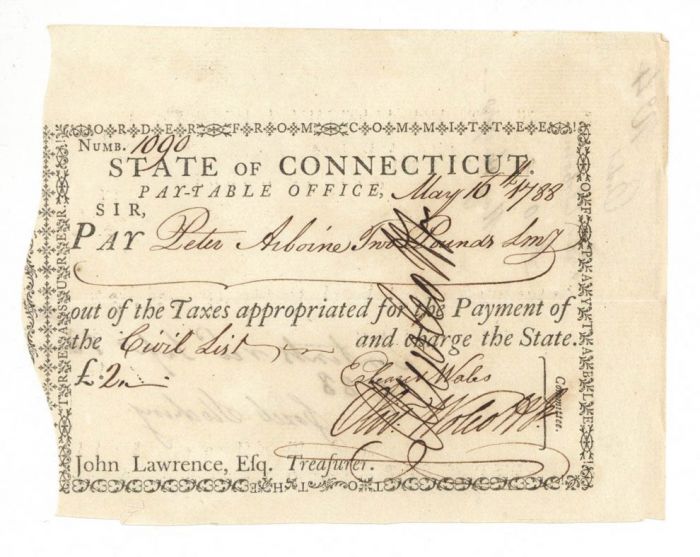 ORDER FROM COMMITTEE
OF PAY-TABLE
TO THE
TREASURER
NUMB. 1090
STATE OF CONNECTICUT.
PAY-TABLE OFFICE, May 16th 1788
SIR,
PAY Peter Two Pounds Lmy
out of the Taxes appropriated for the Payment of
the Civil List and charge the State.
£ 2
Eleazer Wales
Oliv Wolcott Jr
Committee.
John Lawrence, Esq. Treasurer.